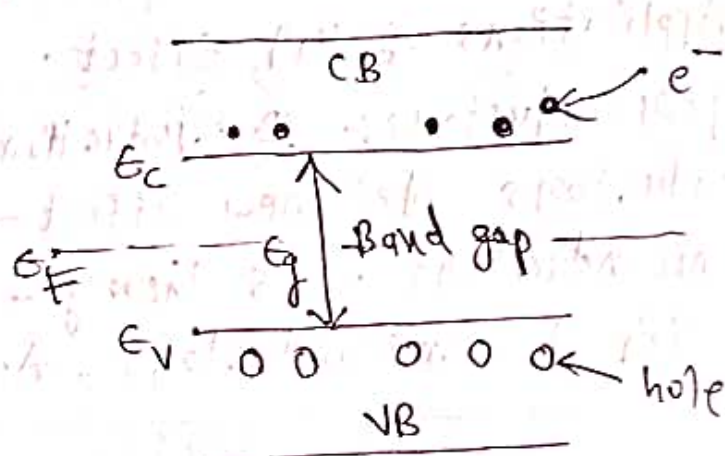 CB
e⁻
E_C
E_F E_g Band gap
E_V
hole
VB